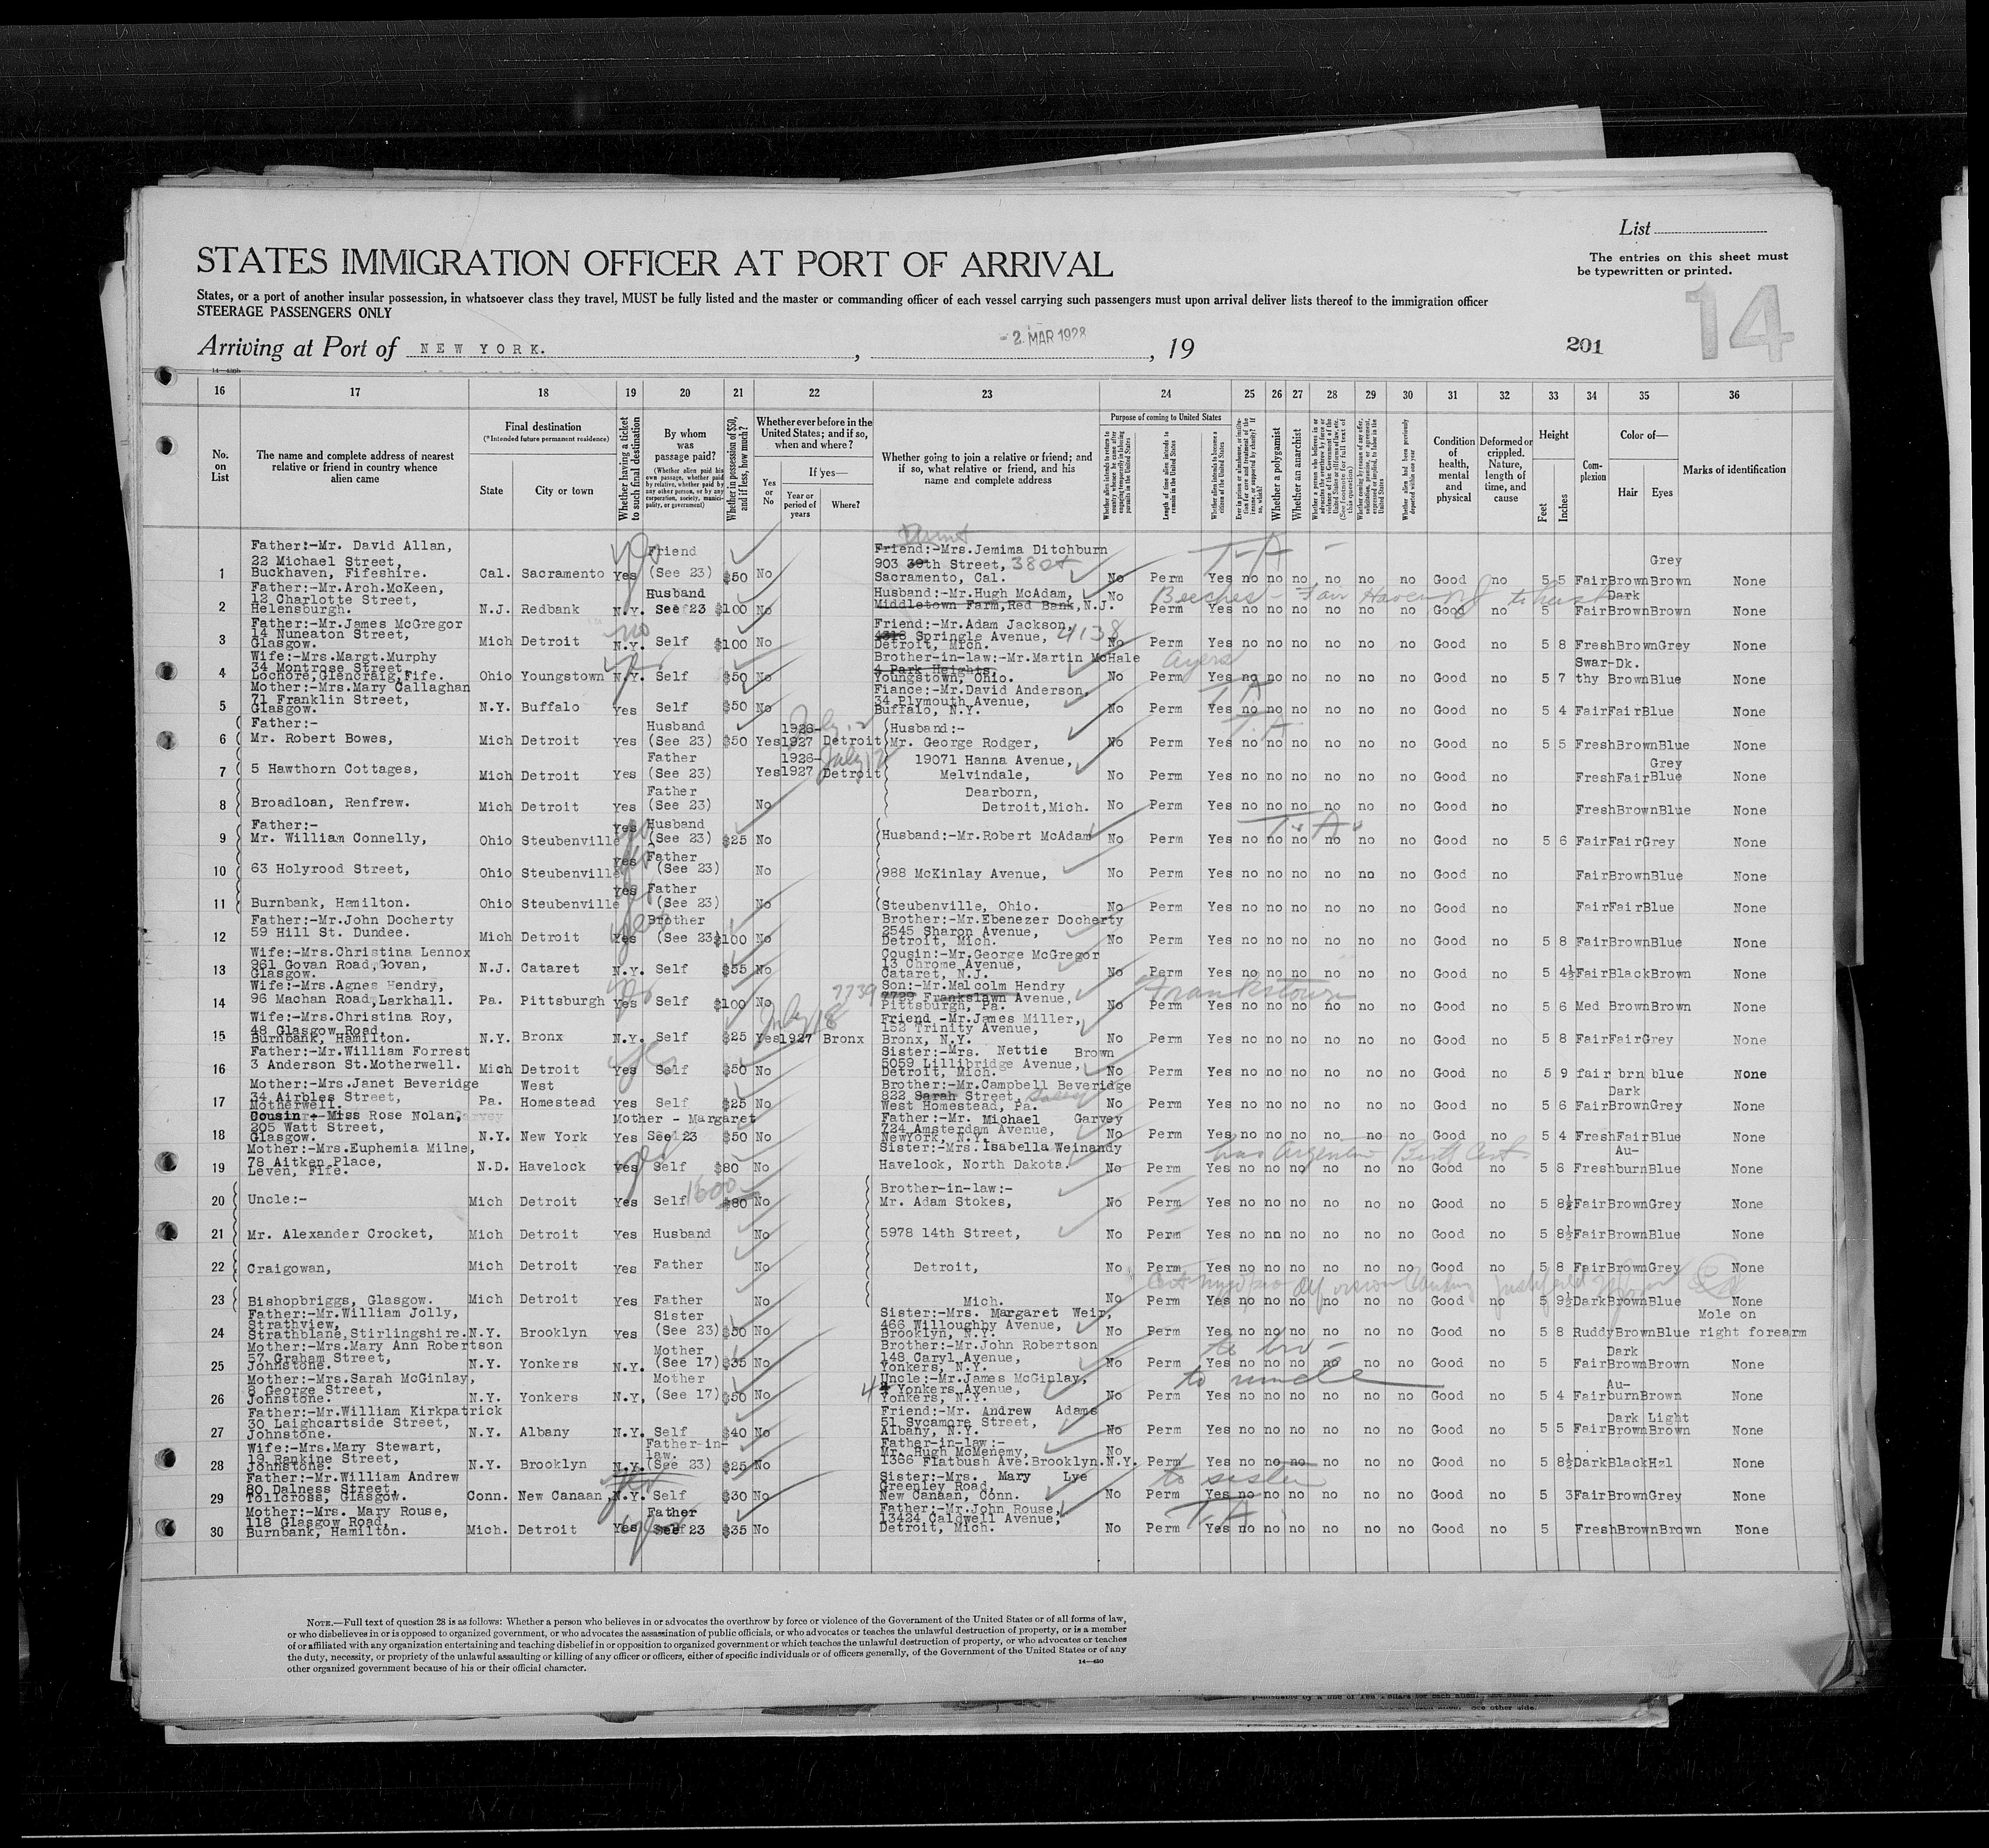 List
STATES IMMIGRATION OFFICER AT PORT OF ARRIVAL
The entries on this sheet must
be typewritten or printed.
States, or a port of another insular possession, in whatsoever class they travel, MUST be fully listed and the master or commanding officer of each vessel carrying such passengers must upon arrival deliver lists thereof to the immigration officer
STEERAGE PASSENGERS ONLY
14
Arriving at Port of NEW YORK. , - 2. MAR 1928 , 19
201
16 17 18 19 20 21 22 23 24 25 26 27 28 29 30 31 32 33 34 35 36
No. on List
The name and complete address of nearest relative or friend in country whence alien came
Final destination
(*Intended future permanent residence)
State
City or town
Whether having a ticket to such final destination
By whom was passage paid?
(Whether alien paid his own passage, whether paid by relative, whether paid by any other person, or by any corporation, society, municipality, or government)
Whether in possession of $50, and if less, how much?
Whether ever before in the United States; and if so, when and where?
Yes or No
If yes—
Year or period of years
Where?
Whether going to join a relative or friend; and if so, what relative or friend, and his name and complete address
Purpose of coming to United States
Length of time alien intends to remain in the United States
Whether alien intends to become a citizen of the United States
Whether a polygamist
Whether an anarchist
Condition of health, mental and physical
Deformed or crippled. Nature, length of time, and cause
Height
Feet
Inches
Complexion
Color of—
Hair
Eyes
Marks of identification
1 Father:-Mr. David Allan, 22 Michael Street, Buckhaven, Fifeshire. Cal. Sacramento Yes Friend (See 23) $50 No Friend:-Mrs.Jemima Ditchburn 903 39th Street, 38th Sacramento, Cal. No Perm Yes no no no no no no Good no 5 5 Fair Brown Grey Brown None
2 Father:-Mr.Arch.McKeen, 12 Charlotte Street, Helensburgh. N.J. Redbank N.Y. Husband See 23 $100 No Husband:-Mr.Hugh McAdam, Middletown Farm,Red Bank,N.J. No Perm Yes no no no no no no Good no 5 5 Fair Dark Brown Brown None
Beeches - Fair Haven NJ to husb
3 Father:-Mr.James McGregor 14 Nuneaton Street, Glasgow. Mich Detroit N.Y. no Self $100 No Friend:-Mr.Adam Jackson, 4318 Springle Avenue, 4138 Detroit, Mich. No Perm Yes no no no no no no Good no 5 8 Fresh Brown Grey None
4 Wife:-Mrs.Margt.Murphy 34 Montrose Street, Lochore,Glencraig,Fife. Ohio Youngstown N.Y. Self $50 No Brother-in-law:-Mr.Martin McHale 4 Park Heights Ayers Youngstown, Ohio. No Perm Yes no no no no no no Good no 5 7 Swarthy Dk. Brown Blue None
5 Mother:-Mrs.Mary Callaghan 71 Franklin Street, Glasgow. N.Y. Buffalo Yes Self $50 No Fiance:-Mr.David Anderson, 34 Plymouth Avenue, Buffalo, N.Y. No Perm Yes no no no no no no Good no 5 4 Fair Fair Blue None
6 Father:- Mr. Robert Bowes, Mich Detroit Yes Husband (See 23) $50 Yes 1926-1927 Detroit Husband:- Mr. George Rodger, No Perm Yes no no no no no no Good no 5 5 Fresh Brown Blue None
7 5 Hawthorn Cottages, Mich Detroit Yes Father (See 23) Yes 1926-1927 Detroit 19071 Hanna Avenue, Melvindale, No Perm Yes no no no no no no Good no Fresh Fair Grey Blue None
8 Broadloan, Renfrew. Mich Detroit Yes Father (See 23) No Dearborn, Detroit,Mich. No Perm Yes no no no no no no Good no Fresh Brown Blue None
9 Father:- Mr. William Connelly, Ohio Steubenville Yes Husband (See 23) $25 No Husband:-Mr.Robert McAdam No Perm Yes no no no no no no Good no 5 6 Fair Fair Grey None
10 63 Holyrood Street, Ohio Steubenville Yes Father (See 23) No 988 McKinlay Avenue, No Perm Yes no no no no no no Good no Fair Brown Blue None
11 Burnbank, Hamilton. Ohio Steubenville Yes Father (See 23) No Steubenville, Ohio. No Perm Yes no no no no no no Good no Fair Fair Blue None
12 Father:-Mr.John Docherty 59 Hill St. Dundee. Mich Detroit Yes Brother (See 23) $100 No Brother:-Mr.Ebenezer Docherty 2545 Sharon Avenue, Detroit, Mich. No Perm Yes no no no no no no Good no 5 8 Fair Brown Blue None
13 Wife:-Mrs.Christina Lennox 961 Govan Road,Govan, Glasgow. N.J. Cataret N.Y. Self $55 No Cousin:-Mr.George McGregor 13 Chrome Avenue, Cataret, N.J. No Perm Yes no no no no no no Good no 5 4½ Fair Black Brown None
14 Wife:-Mrs.Agnes Hendry, 96 Machan Road,Larkhall. Pa. Pittsburgh Yes Self $100 No Son:-Mr.Malcolm Hendry 7739 Frankslawn Avenue, Frankstown Pittsburgh, Pa. No Perm Yes no no no no no no Good no 5 6 Med Brown Brown None
15 Wife:-Mrs.Christina Roy, 48 Glasgow Road, Burnbank, Hamilton. N.Y. Bronx N.Y. Self $25 Yes 1927 Bronx Friend -Mr.James Miller, 152 Trinity Avenue, Bronx, N.Y. No Perm Yes no no no no no no Good no 5 8 Fair Fair Grey None
16 Father:-Mr.William Forrest 3 Anderson St.Motherwell. Mich Detroit Yes Self $50 No Sister:-Mrs. Nettie Brown 5059 Lillibridge Avenue, Detroit, Mich. No Perm Yes no no no no no no Good no 5 9 fair brn blue None
17 Mother:-Mrs.Janet Beveridge 34 Airbles Street, Motherwell. Pa. West Homestead Yes Self $25 No Brother:-Mr.Campbell Beveridge 822 Sarah Street, West Homestead, Pa. No Perm Yes no no no no no no Good no 5 6 Fair Dark Brown Grey None
18 Cousin - Miss Rose Nolan, 205 Watt Street, Glasgow. N.Y. New York Yes Mother - Margaret See 23 $50 No Father:-Mr. Michael Garvey 724 Amsterdam Avenue, NewYork, N.Y. No Perm Yes no no no no no no Good no 5 4 Fresh Fair Blue None
19 Mother:-Mrs.Euphemia Milne, 78 Aitken Place, Leven, Fife. N.D. Havelock Yes Self $80 No Sister:-Mrs.Isabella Weinandy Havelock, North Dakota. No Perm Yes no no no no no no Good no 5 8 Fresh Au-burn Blue None
20 Uncle:- Mich Detroit Yes Self 1600 $80 No Brother-in-law:- Mr. Adam Stokes, No Perm Yes no no no no no no Good no 5 8½ Fair Brown Grey None
21 Mr. Alexander Crocket, Mich Detroit Yes Husband No 5978 14th Street, No Perm Yes no no no no no no Good no 5 8½ Fair Brown Blue None
22 Craigowan, Mich Detroit Yes Father No Detroit, No Perm Yes no no no no no no Good no 5 8 Fair Brown Grey None
23 Bishopbriggs, Glasgow. Mich Detroit Yes Father No Mich. No Perm Yes no no no no no no Good no 5 9½ Dark Brown Blue None
24 Father:-Mr.William Jolly, Strathview, Strathblane,Stirlingshire. N.Y. Brooklyn Yes Sister (See 23) $50 No Sister:-Mrs. Margaret Weir, 466 Willoughby Avenue, Brooklyn, N.Y. No Perm Yes no no no no no no Good no 5 8 Ruddy Brown Blue Mole on right forearm
25 Mother:-Mrs.Mary Ann Robertson 57 Graham Street, Johnstone. N.Y. Yonkers N.Y. Mother (See 17) $35 No Brother:-Mr.John Robertson 148 Caryl Avenue, Yonkers, N.Y. to bro - No Perm Yes no no no no no no Good no 5 Fair Dark Brown Brown None
26 Mother:-Mrs.Sarah McGinlay, 8 George Street, Johnstone. N.Y. Yonkers N.Y, Mother (See 17) $50 No Uncle:-Mr.James McGinlay, Yonkers Avenue, Yonkers, N.Y. to uncle No Perm Yes no no no no no no Good no 5 4 Fair Au-burn Brown None
27 Father:-Mr.William Kirkpatrick 30 Laighcartside Street, Johnstone. N.Y. Albany N.Y. Self $40 No Friend:-Mr. Andrew Adams 51 Sycamore Street, Albany, N.Y. No Perm Yes no no no no no no Good no 5 5 Fair Dark Brown Light Brown None
28 Wife:-Mrs.Mary Stewart, 19 Rankine Street, Johnstone. N.Y. Brooklyn N.Y. Father-in-law. (See 23) $25 No Father-in-law:- Mr. Hugh McMenemy, 1366 Flatbush Ave.Brooklyn.N.Y. No Perm Yes no no no no no no Good no 5 8½ Dark Black Hzl None
29 Father:-Mr.William Andrew 80 Dalness Street, Tollcross, Glasgow. Conn. New Canaan, N.Y. Self $30 No Sister:-Mrs. Mary Lye Greenley Road, New Canaan, Conn. to sister No Perm Yes no no no no no no Good no 5 3 Fair Brown Grey None
30 Mother:-Mrs. Mary Rouse, 118 Glasgow Road, Burnbank, Hamilton. Mich. Detroit Yes Father See 23 $35 No Father:-Mr.John Rouse, 13424 Caldwell Avenue, Detroit, Mich. T.A. No Perm Yes no no no no no no Good no 5 Fresh Brown Brown None
NOTE.—Full text of question 28 is as follows: Whether a person who believes in or advocates the overthrow by force or violence of the Government of the United States or of all forms of law,
or who disbelieves in or is opposed to organized government, or who advocates the assassination of public officials, or who advocates or teaches the unlawful destruction of property, or is a member
of or affiliated with any organization entertaining and teaching disbelief in or opposition to organized government or which teaches the unlawful destruction of property, or who advocates or teaches
the duty, necessity, or propriety of the unlawful assaulting or killing of any officer or officers, either of specific individuals or of officers generally, of the Government of the United States or of any
other organized government because of his or their official character.